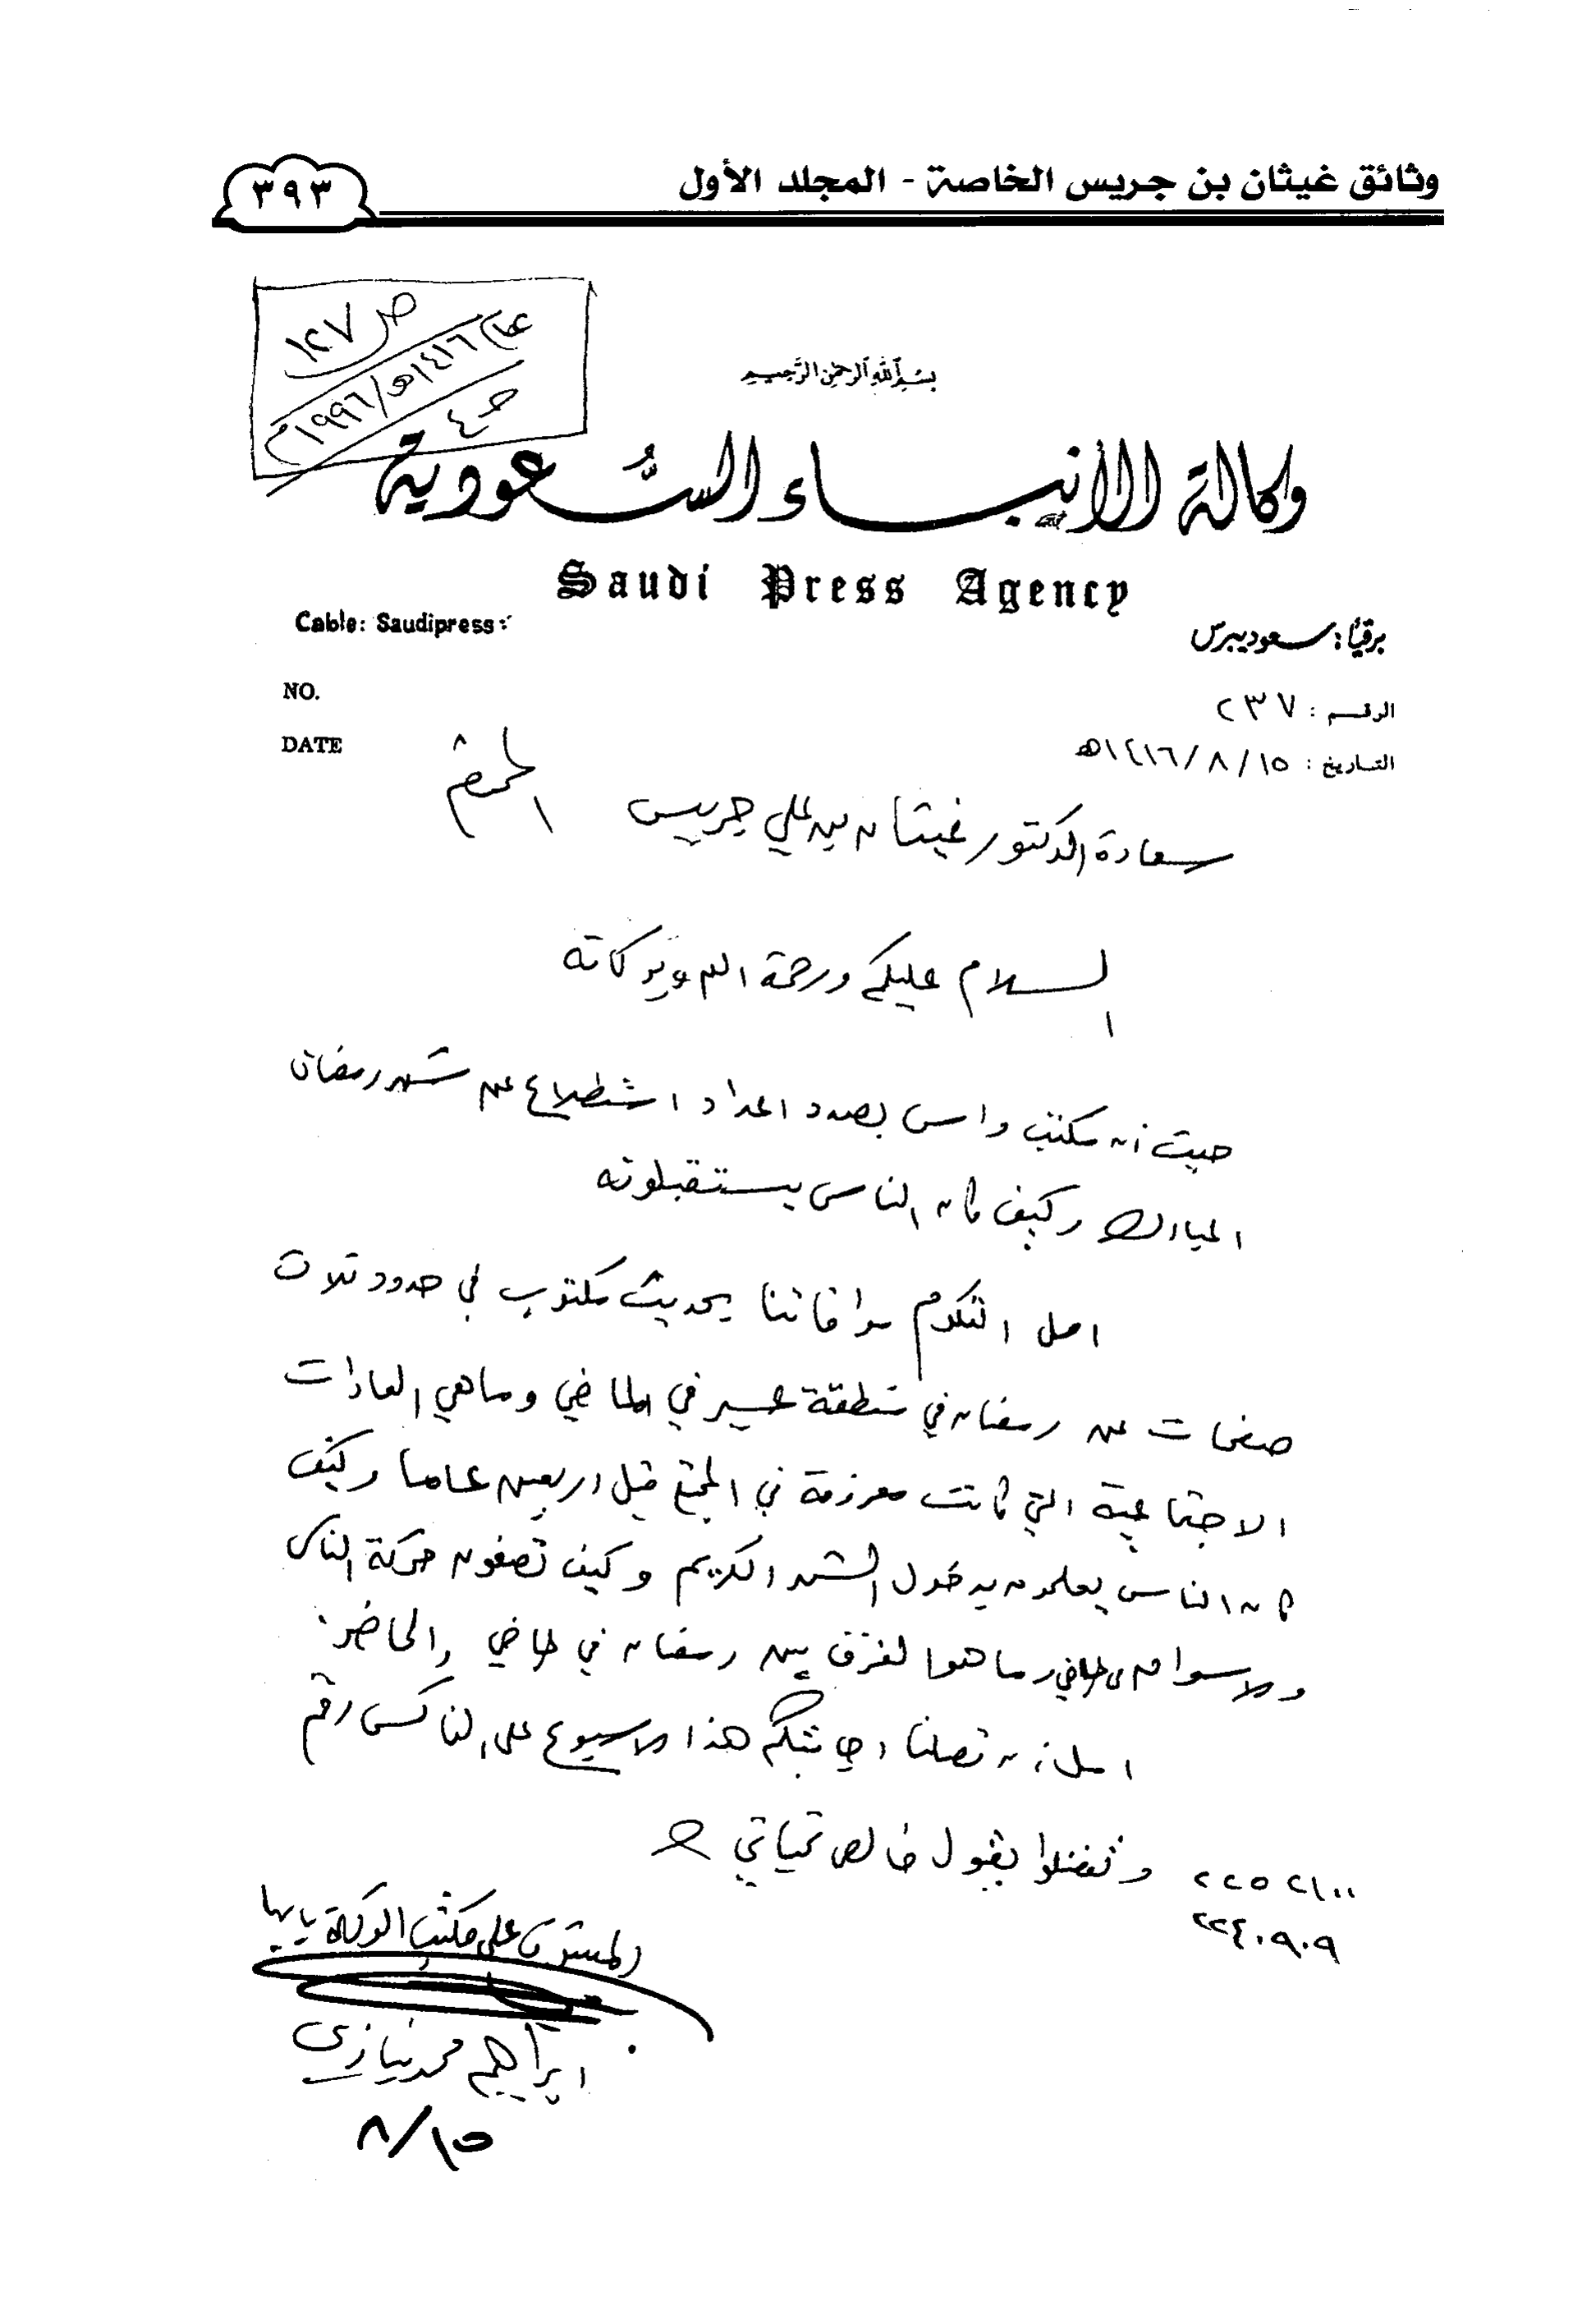 وثائق غيثان بن جريس الخاصة - المجلد الأول
٣٩٣
ص ١٢٧
عام ١٤١٦هـ/١٩٩٦م
حـ ٤
بسم الله الرحمن الرحيم
وكالة الأنباء السعودية
Saudi Press Agency
Cable: Saudipress:
برقياً: سعوديبرس
NO.
الرقم: ٢٣٧
DATE
التاريخ: ١٥/٨/١٤١٦هـ
سعادة الدكتور غيثان بن علي جريس المحترم
السلام عليكم ورحمة الله وبركاته
حيث أن مكتب واس بصدد اعداد استطلاع عن شهر رمضان
المبارك وكيف كان الناس يستقبلونه
امل التكرم موافاتنا بحديث مكتوب في حدود ثلاث
صفحات عن رمضان في منطقة عسير في الماضي وماهي العادات
الاجتماعية التي كانت معروفة في المجتمع قبل اربعين عاما وكيف
كان الناس يعلمون بدخول الشهر الكريم وكيف تصفون حركة الناس
والاسواق في الماضي وما هو الفرق بين رمضان في الماضي والحاضر.
امل أن تصلنا اجابتكم هذا الاسبوع على الفاكس رقم
٢٢٥٢١٠٠ وتفضلوا بقبول خالص تحياتي
٢٢٤٠٩٠٩
المشرف على مكتب الوكالة بابها
ابراهيم محمد نيازي
١٥/٨